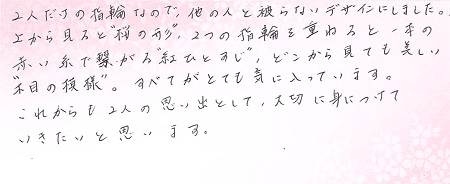 2人だけの指輪なので、他の人と被らないデザインにしました。
上から見ると"桜の形"、2つの指輪を重ねると一本の
赤い糸で繋がる"紅ひとすじ"、どこから見ても美しい
"木目の模様"。すべてがとても気に入っています。
これからも2人の思い出として、大切に身につけて
いきたいと思います。